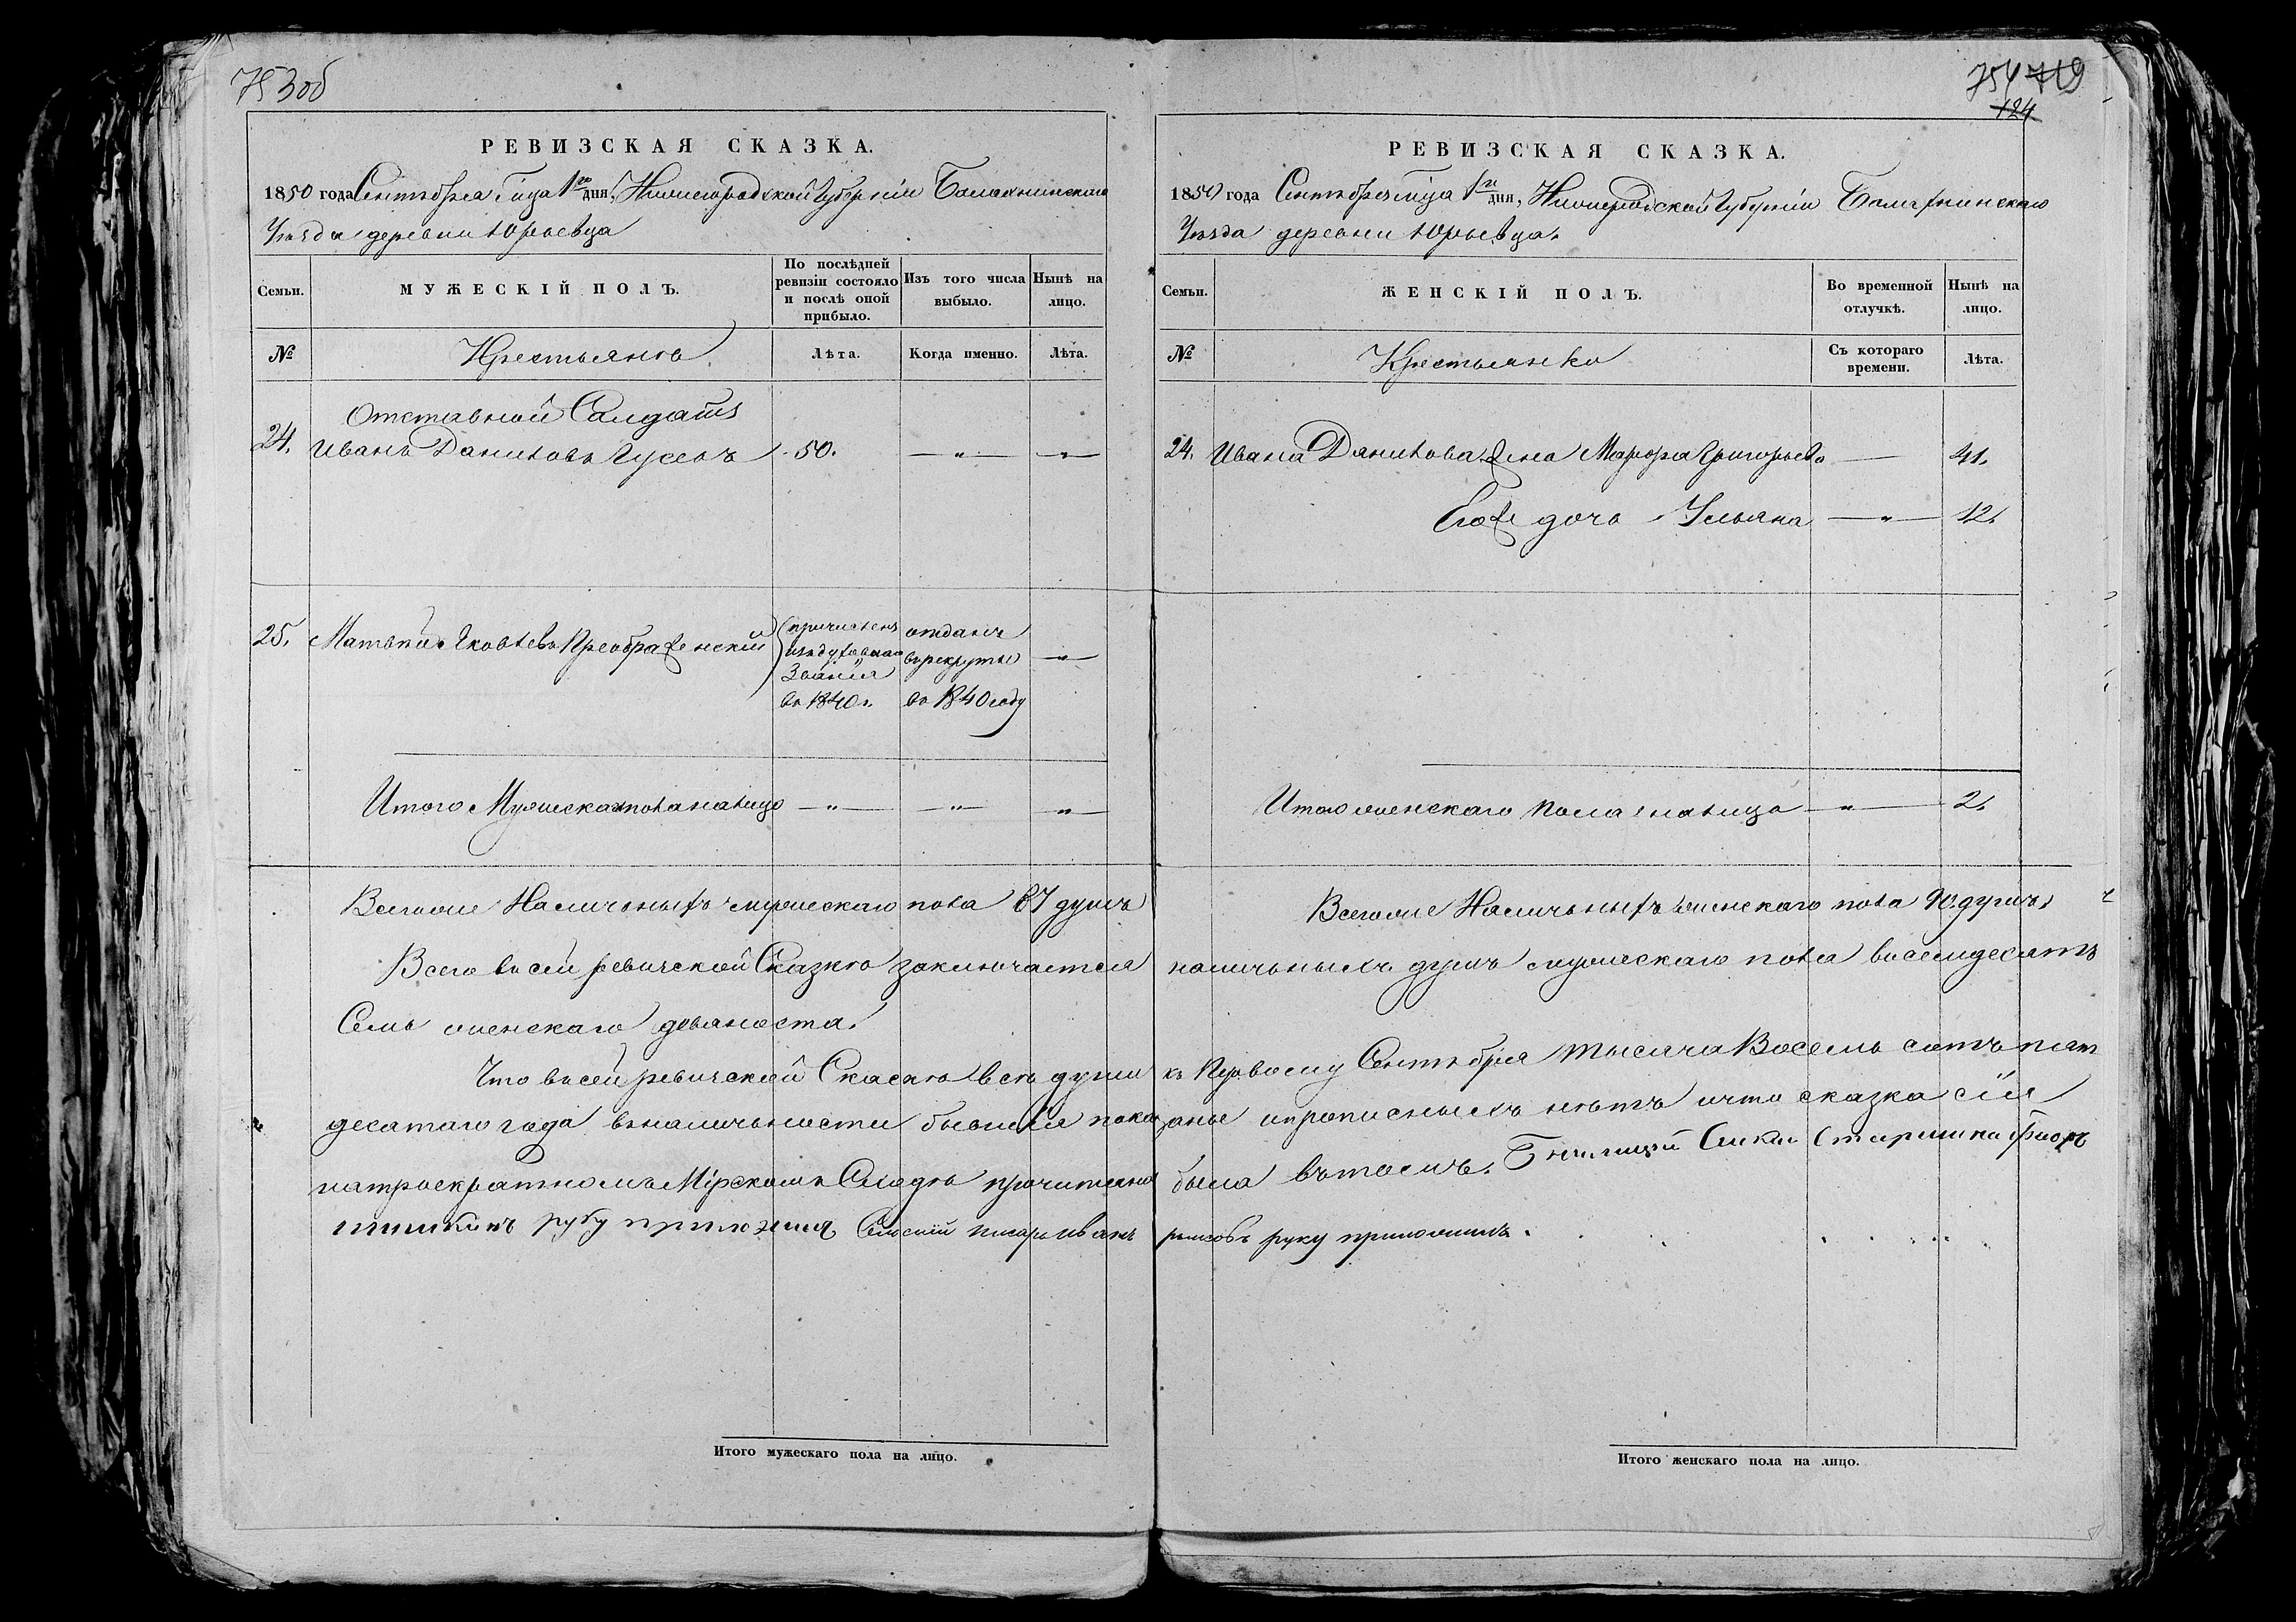 753об
РЕВИЗСКАЯ СКАЗКА.
1850 года Сентября м-ца 1го дня, Нижегородской Губерніи Балахнинскаго
Уѣзда деревни Юрьевца
Семьи.
МУЖЕСКІЙ ПОЛЪ.
По послѣдней ревизіи состояло и послѣ оной прибыло.
Изъ того числа выбыло.
Нынѣ на лицо.
№
Крестьянѣ
Лѣта.
Когда именно.
Лѣта.
Отставной Салдатъ
24. Иванъ Даниловъ Гусевъ 50. — „ — — „ —
25. Матвѣй Яковлевъ Преображенскій
причисленъ изъ духовнаго Званія въ 1840г.
отданъ въ рекруты въ 1840 году
— „ —
Итого Мужескаго пола налицо — „ — — „ — — „ —
Всего же Наличныхъ мужескаго пола 87 душъ
Всего въ сей ревизской Сказкѣ заключается
Семь женскаго девяноста.
Что въ сей ревизской Скаскѣ всѣ души
десятаго года въ наличьности бывшія пока
на троекратномъ Мірскомъ Сходѣ прочитана
шишкинъ руку приложилъ Сельскій писарь Иванъ
Итого мужескаго пола на лицо.
754 719
124
РЕВИЗСКАЯ СКАЗКА.
1850 года Сентября м-ца 1го дня, Нижегородской Губерніи Балахнинскаго
Уѣзда деревни Юрьевца.
Семьи.
ЖЕНСКІЙ ПОЛЪ.
Во временной отлучкѣ.
Нынѣ на лицо.
№
Крестьянки
Съ котораго времени.
Лѣта.
24. Ивана Данилова жена Марфа Григорьева — 41.
Его же дочь Ульяна — „ — 12.
Итого женскаго пола налицо — „ — 2.
Всего же Наличныхъ женскаго пола 90. душъ,
наличныхъ душъ мужескаго пола восемдесятъ
къ Первому Сентября тысяча Восемь сотъ пят
заные и прописныхъ нѣтъ и что сказка сія
была въ томъ. Старшина
руку приложилъ.
Итого женскаго пола на лицо.